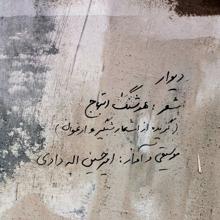 دیوار
شعر: هوشنگ ابتهاج
(گزیده از اشعار شبگیر و ارغوان)
موسیقی و آواز: امیرحسین اله دادی